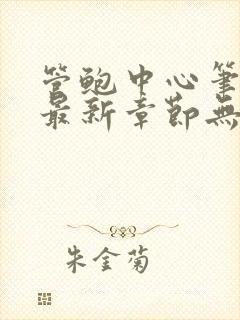 管鲍中心筆
最新章節無
朱金菊